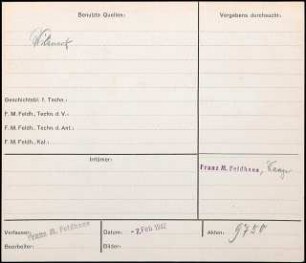 Benutzte Quellen:
Vergebens durchsucht:
Geschichtsbl. f. Techn.:
F. M. Feldh., Techn. d. V.:
F. M. Feldh. Techn. d. Ant.:
F. M. Feldh., Kal.:
Irrtümer:
Franz M. Feldhaus,
Verfasser: Franz M. Feldhaus
Datum: -2. Feb. 1942
Akten: 9750
Bearbeiter:
Bilder: